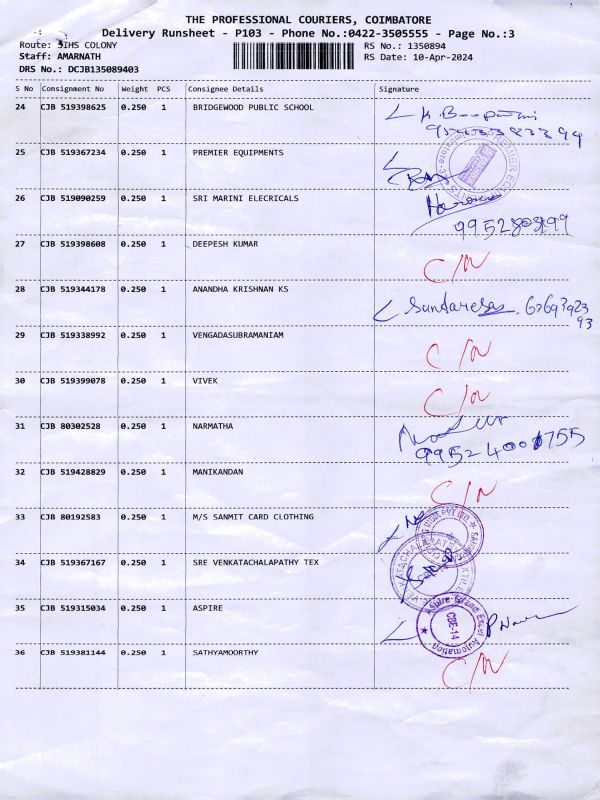 THE PROFESSIONAL COURIERS, COIMBATORE
Delivery Runsheet - P103 - Phone No.:0422-3505555 - Page No.:3
Route: SIHS COLONY RS No.: 1350894
Staff: AMARNATH RS Date: 10-Apr-2024
DRS No.: DCJB135089403
S No Consignment No Weight PCS Consignee Details Signature
24 CJB 519398625 0.250 1 BRIDGEWOOD PUBLIC SCHOOL
25 CJB 519367234 0.250 1 PREMIER EQUIPMENTS
26 CJB 519090259 0.250 1 SRI MARINI ELECRICALS
27 CJB 519398608 0.250 1 DEEPESH KUMAR C/N
28 CJB 519344178 0.250 1 ANANDHA KRISHNAN KS Sundaresan
29 CJB 519338992 0.250 1 VENGADASUBRAMANIAM C/N
30 CJB 519399078 0.250 1 VIVEK C/N
31 CJB 80302528 0.250 1 NARMATHA
9952400755
32 CJB 519428829 0.250 1 MANIKANDAN C/N
33 CJB 80192583 0.250 1 M/S SANMIT CARD CLOTHING
34 CJB 519367167 0.250 1 SRE VENKATACHALAPATHY TEX
35 CJB 519315034 0.250 1 ASPIRE CBE-14
36 CJB 519381144 0.250 1 SATHYAMOORTHY C/N